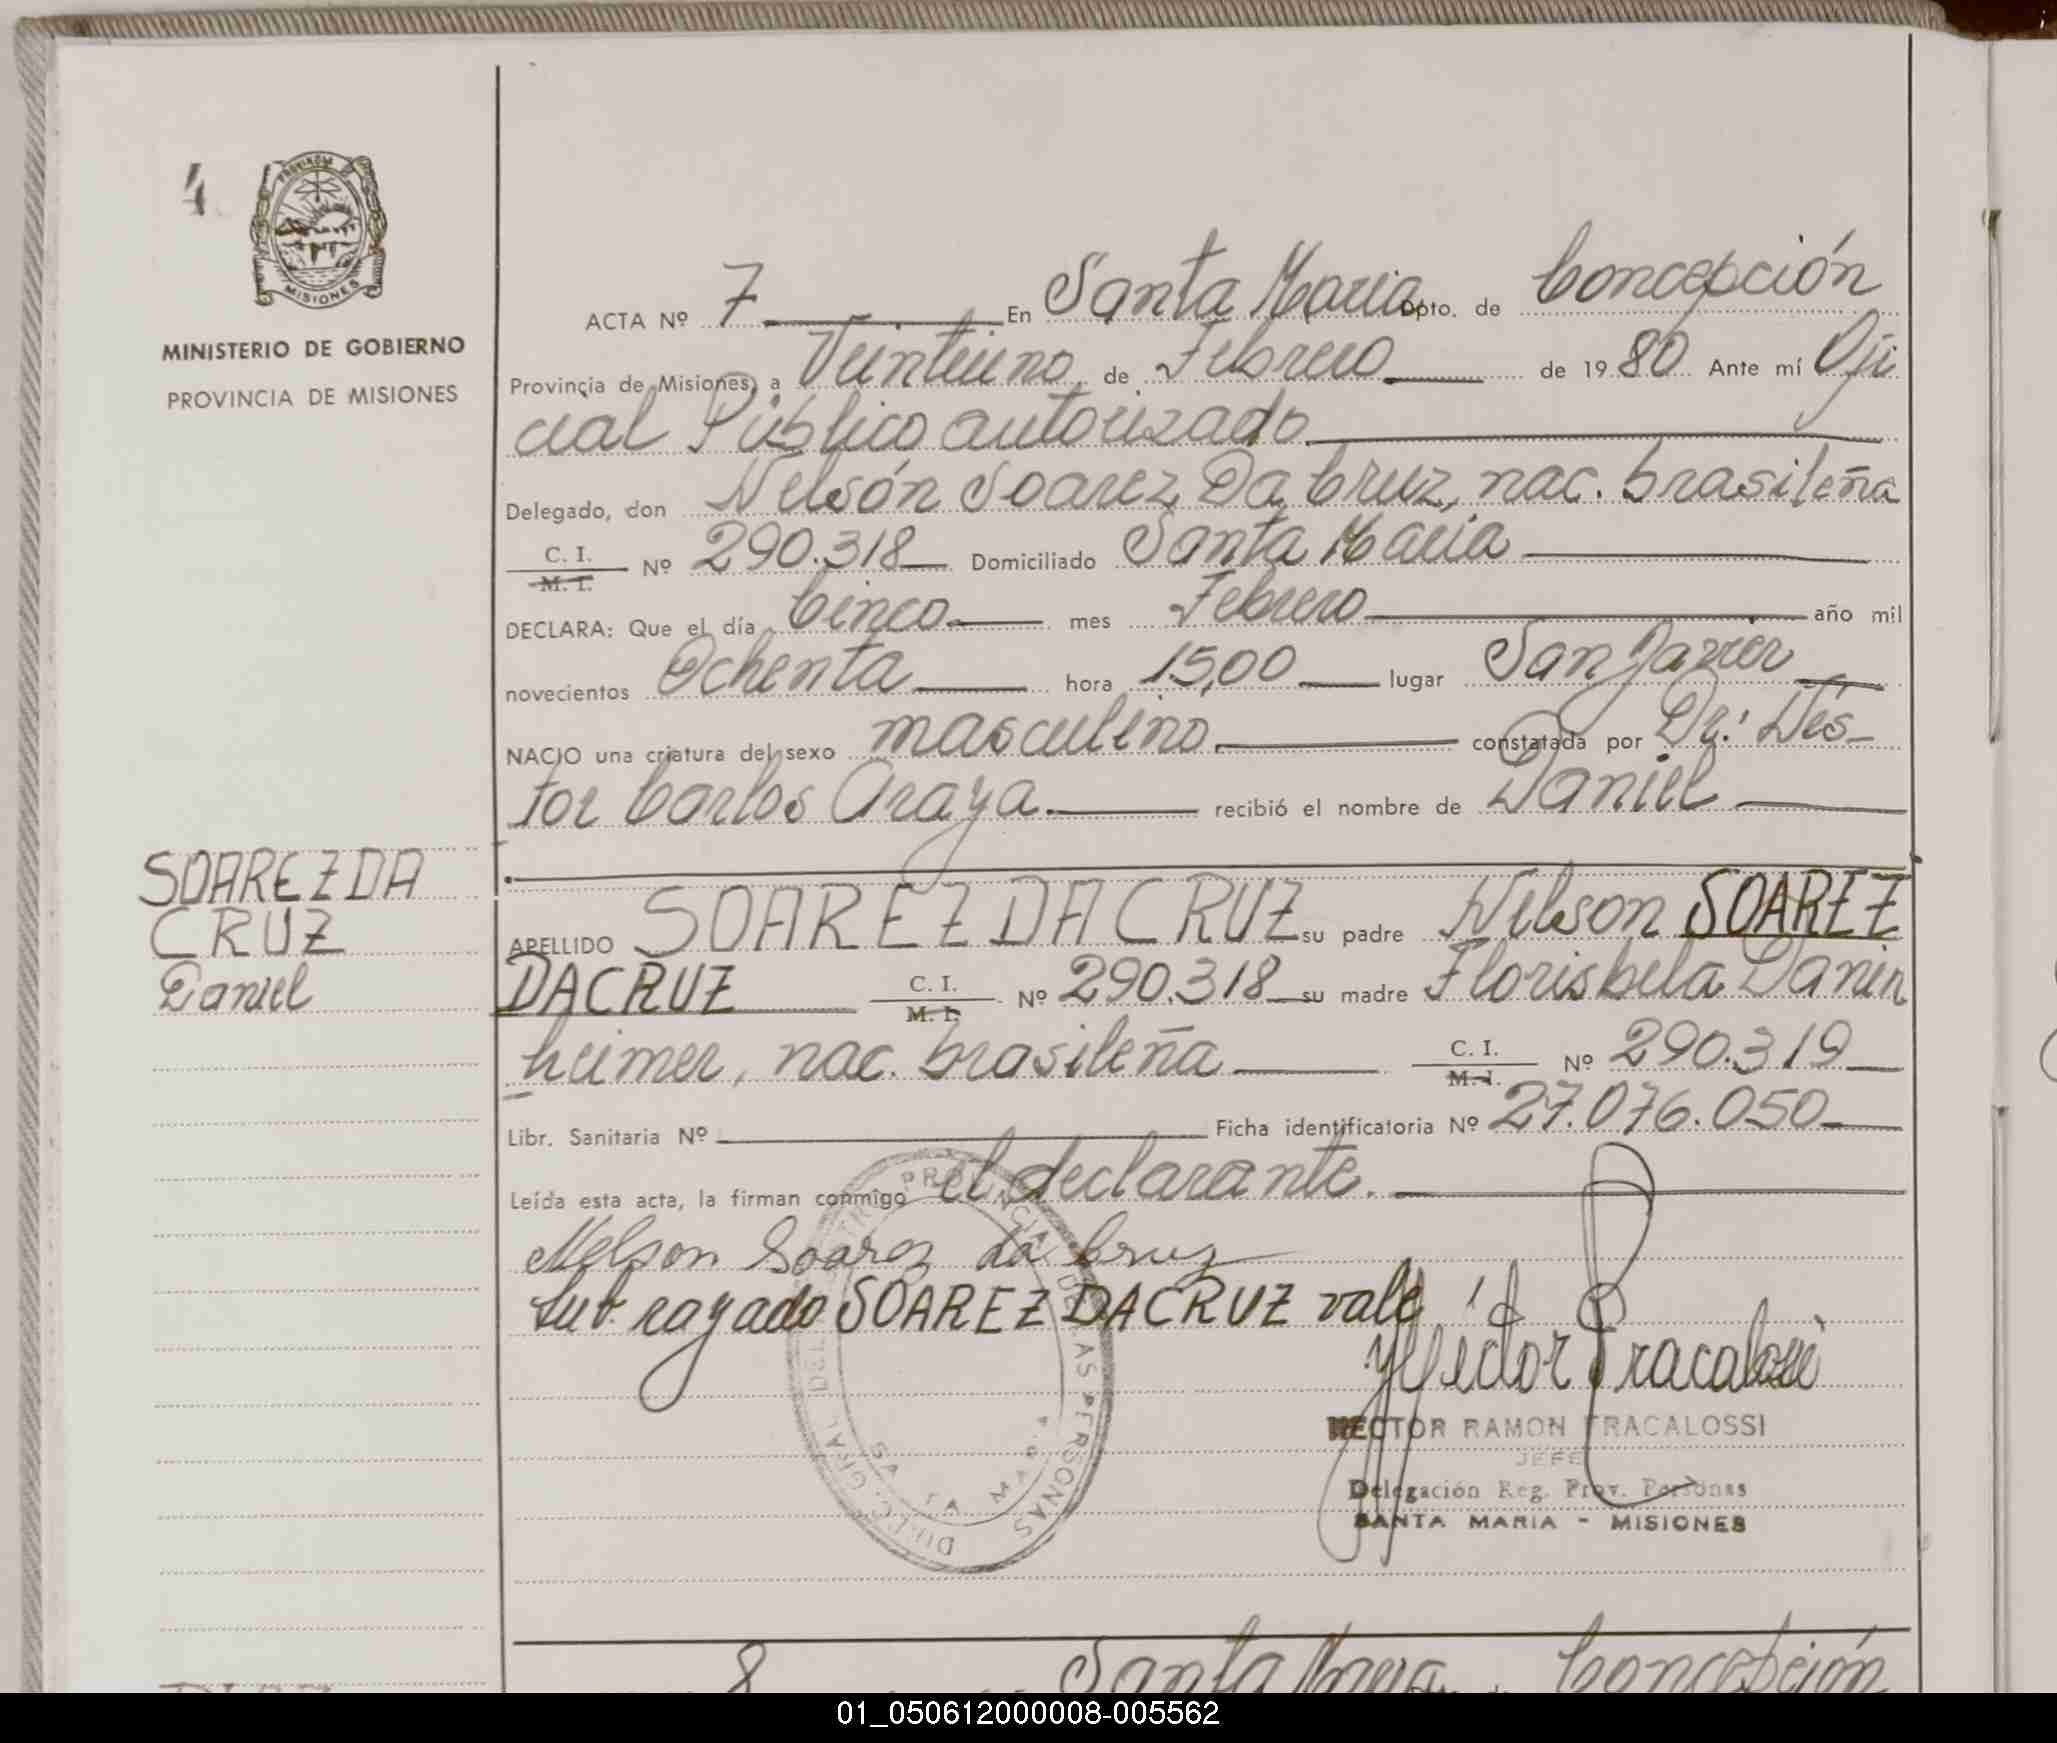 4
PROVINCIA
MISIONES
MINISTERIO DE GOBIERNO
PROVINCIA DE MISIONES
ACTA Nº 7 En Santa Maria Dpto. de Concepción
Provincia de Misiones, a Veintiuno de Febrero de 1980 Ante mí Ofi
cial Público autorizado
Delegado, don Nelsón Soarez Da Cruz, nac. brasileña
C. I.
M. I. Nº 290.318 Domiciliado Santa Maria
DECLARA: Que el día Cinco mes Febrero año mil
novecientos Ochenta hora 15,00 lugar San Javier
NACIO una criatura del sexo masculino constatada por Dr: Nés-
tor Carlos Araya. recibió el nombre de Daniel
SOAREZ DA
CRUZ
Daniel
APELLIDO SOAREZ DA CRUZ su padre Nelson SOAREZ
DACRUZ C. I.
M. I. Nº 290.318 su madre Florisbela Danin
heimer, nac. brasileña C. I.
M. I. Nº 290.319
Libr. Sanitaria Nº Ficha identificatoria Nº 27.076.050
Leída esta acta, la firman conmigo el declarante.
Nelson Soarez da Cruz
Sub rayado SOAREZ DACRUZ vale
Héctor Fracalossi
HECTOR RAMON FRACALOSSI
JEFE
Delegación Reg. Prov. Personas
SANTA MARIA - MISIONES
8 Santa Maria Concepción
01_050612000008-005562